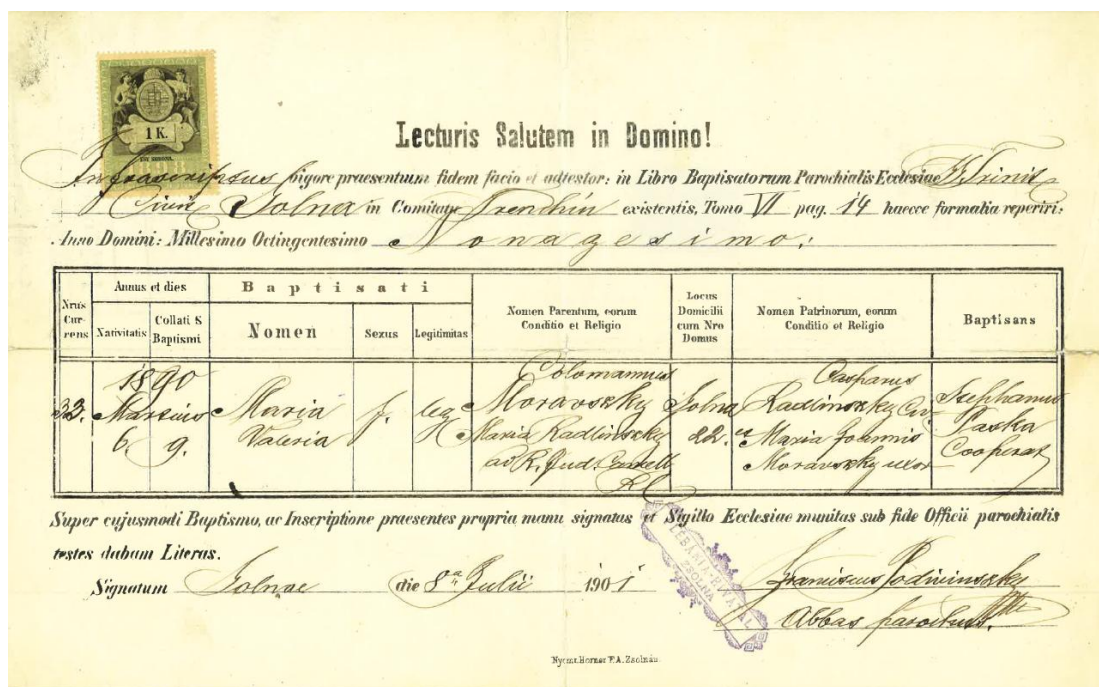 1 K.
1898
Lecturis Salutem in Domino!
Infrascriptus vigore praesentium fidem facio et adtestor: in Libro Baptisatorum Parochialis Ecclesiae SS. Trinit.
Solna in Comitatu Trenchin existentis, Tomo VI pag. 14 haecce formalia reperiri:
Anno Domini: Millesimo Octingentesimo Nonagesimo:
Nrus Currens
Annus et dies
Nativitatis
Collati S Baptismi
Baptisati
Nomen
Sexus
Legitimitas
Nomen Parentum, eorum Conditio et Religio
Locus Domicilii cum Nro Domus
Nomen Patrinorum, eorum Conditio et Religio
Baptisans
33.
1890
Martius
6. 9.
Maria
Valeria
f.
leg
Colomannus
Moravszky
Maria Radlinszky
R. Jud.
RC
Solna
22.
Casparus
Radlinszky Civ
et Maria Joannis
Moravszky uxor
Stephanus
Paska
Cooperat
Super cujusmodi Baptismo, ac Inscriptione praesentes propria manu signatas et Sigillo Ecclesiae munitas sub fide Officii parochialis
testes dabam Literas.
Signatum Solnae die 8a Julii 1901
PLEBANIA-HIVATAL
ZSOLNA
Franciscus Podivinszky
Abbas parochus.
Nyomt. Horner F. A. Zsolnán